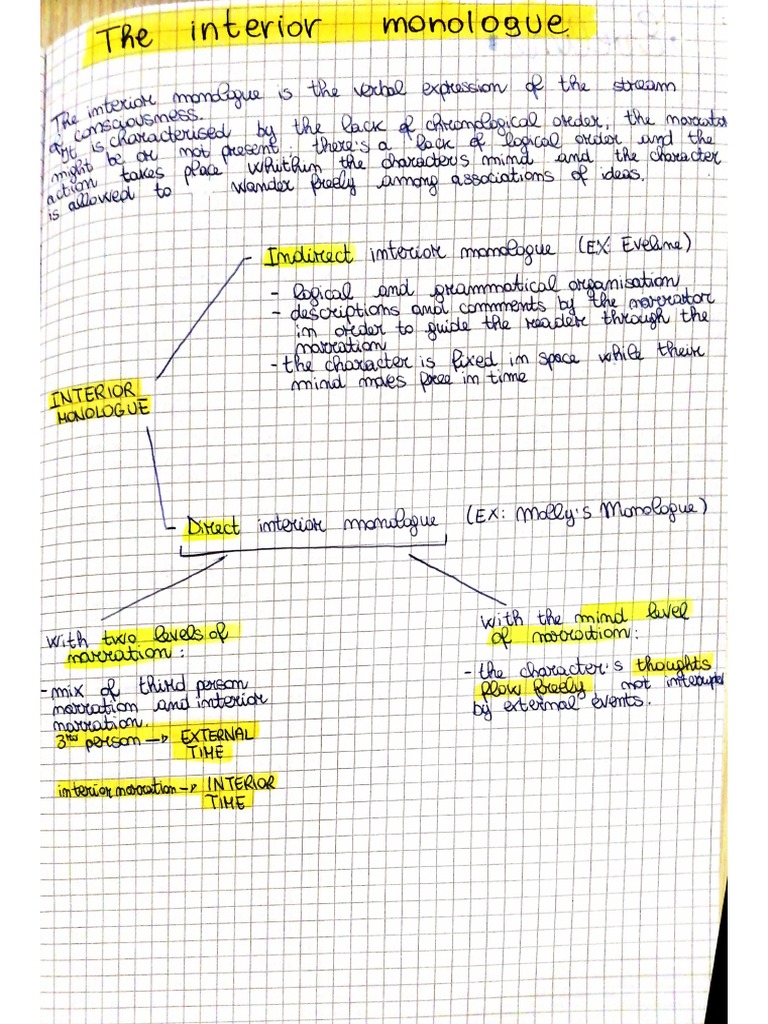 The interior monologue.
The interior monologue is the verbal expression of the stream
of consciousness.
It is characterised by the lack of chronological order, the narrator
might be or not present; there's a lack of logical order and the
action takes place whithin the character's mind and the character
is allowed to wander freely among associations of ideas.
- Indirect interior monologue (EX: Eveline)
- logical and grammatical organisation
- descriptions and comments by the narrator
in order to guide the reader through the
narration
- the character is fixed in space while their
mind moves free in time
INTERIOR
MONOLOGUE
- Direct interior monologue (EX: Molly's Monologue)
with two levels of
narration:
- mix of third person
narration and interior
narration.
3rd person → EXTERNAL
TIME
interior narration → INTERIOR
TIME
with the mind level
of narration:
- the character's thoughts
flow freely not interrupted
by external events.